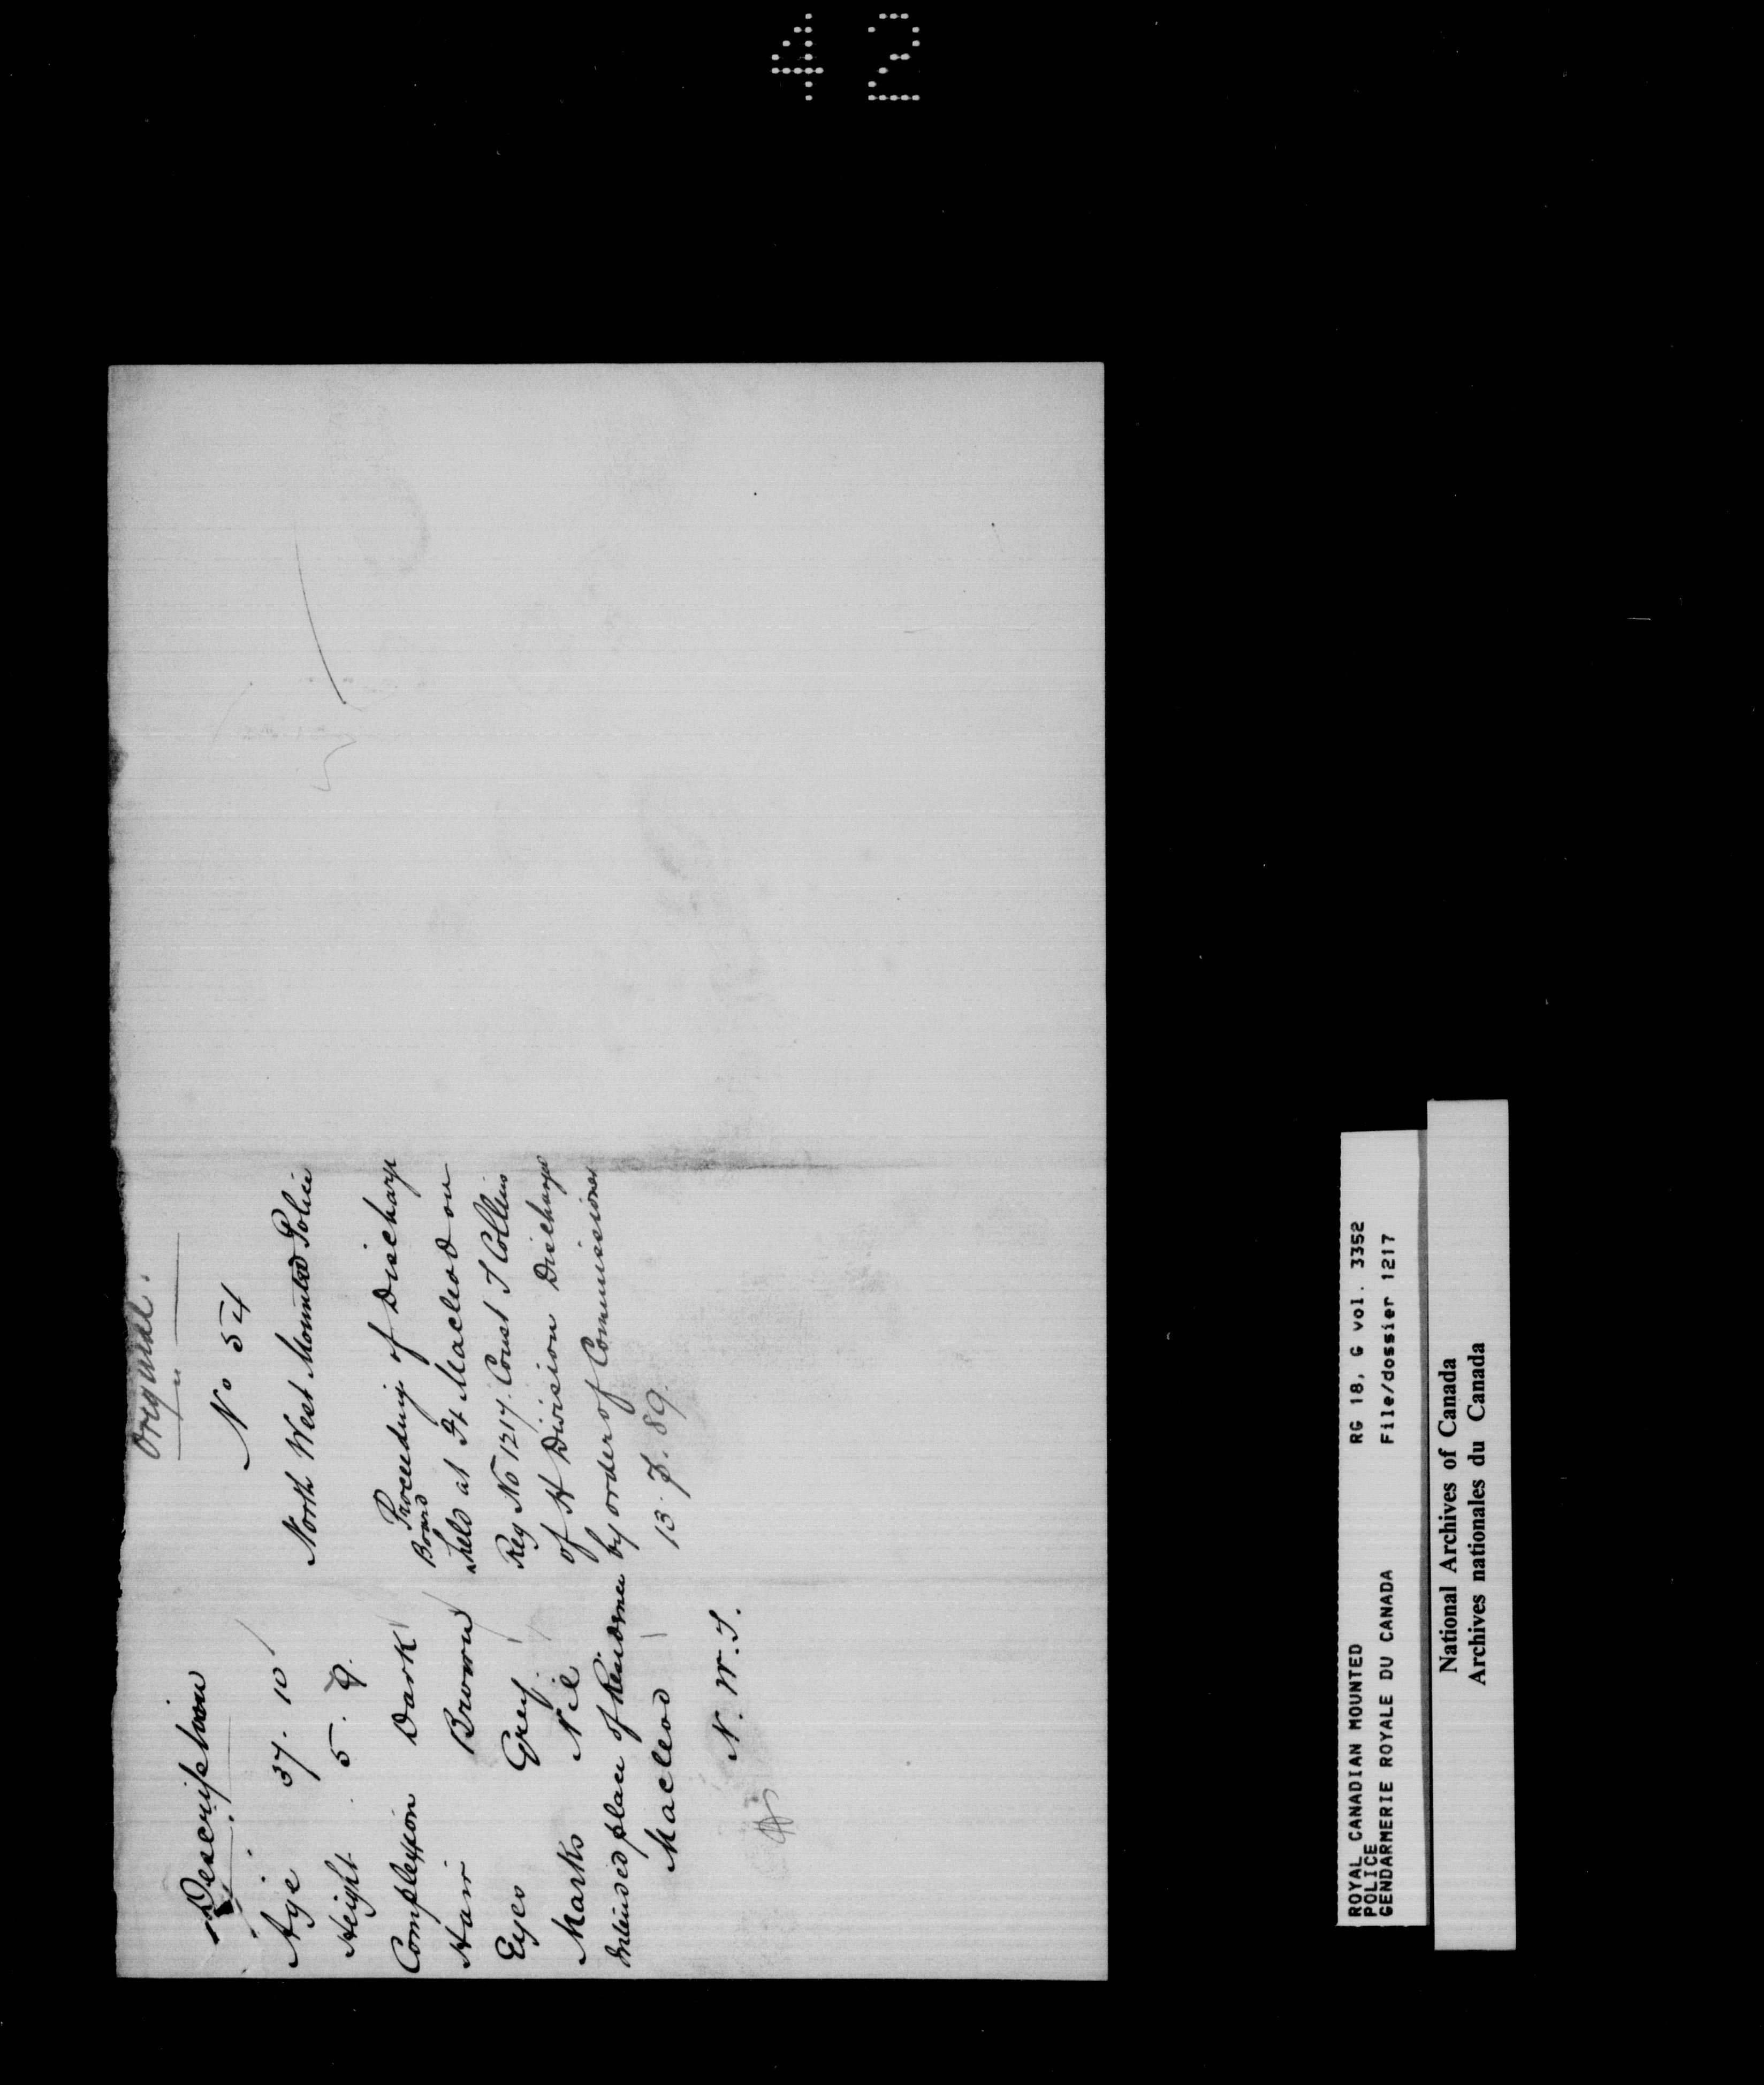 42
Original.
No 54
North West Mounted Police
Proceedings of Discharge
Board
held at Ft Macleod on
Reg No 1217. Const T Collins
of H Division Discharged
by order of Commissioner
13. 7. 89.
Description
Age 37. 10
Height 5. 9.
Complexion Dark
Hair Brown
Eyes Grey
Marks Nil
Intended place of Residence
Macleod
N. W. T.
ROYAL CANADIAN MOUNTED RG 18, G vol. 3352
POLICE
GENDARMERIE ROYALE DU CANADA File/dossier 1217
National Archives of Canada
Archives nationales du Canada